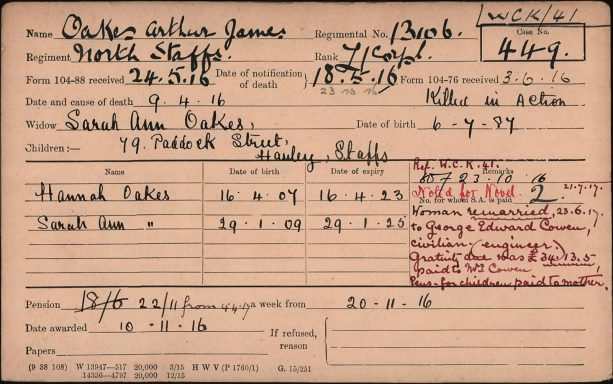 W.C.K/41
Name Oakes Arthur James Regimental No. 13106. Case No.
Regiment North Staffs. Rank L/Corpl. 449.
Form 104-88 received 24.5.16 Date of notification of death } 18.5.16 Form 104-76 received 3.6.16
23 10 16
Date and cause of death 9.4.16 Killed in Action
Widow Sarah Ann Oakes, Date of birth 6-7-87
Children:— 79. Paddock Street,
Hanley, Staffs
Name Date of birth Date of expiry Remarks
Ref. W.C.K. 41.
23.10.16
Hannah Oakes 16.4.07 16.4.23
Noted for Novel. 21.7.17.
No. for whom S.A. is paid 2
Sarah Ann " 29.1.09 29.1.25
Woman remarried, 23.6.17.
to George Edward Cowen,
civilian (engineer.)
Gratuity due was £34.13.5
paid to Mrs Cowen
Pens- for children paid to mother.
Pension 18/6 22/11 from 4.4.17 a week from 20-11-16
Date awarded 10-11-16 If refused, reason
Papers
(9 38 108) W 13947—517 20,000 3/15 H W V (P 1760/1) G. 15/251
14336—4797 20,000 12/15